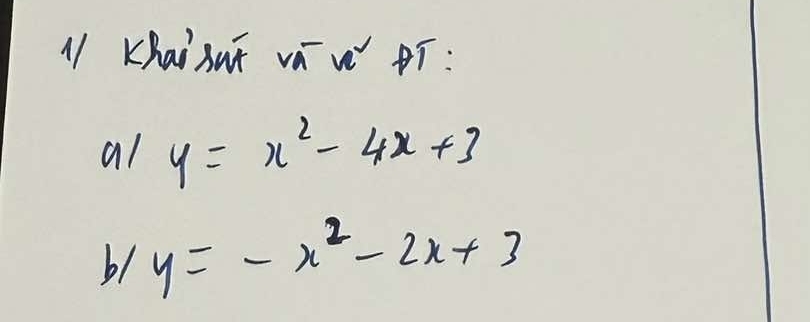 1/ Khảo sát và vẽ ĐT:
a/ y = x² - 4x + 3
b/ y = - x² - 2x + 3